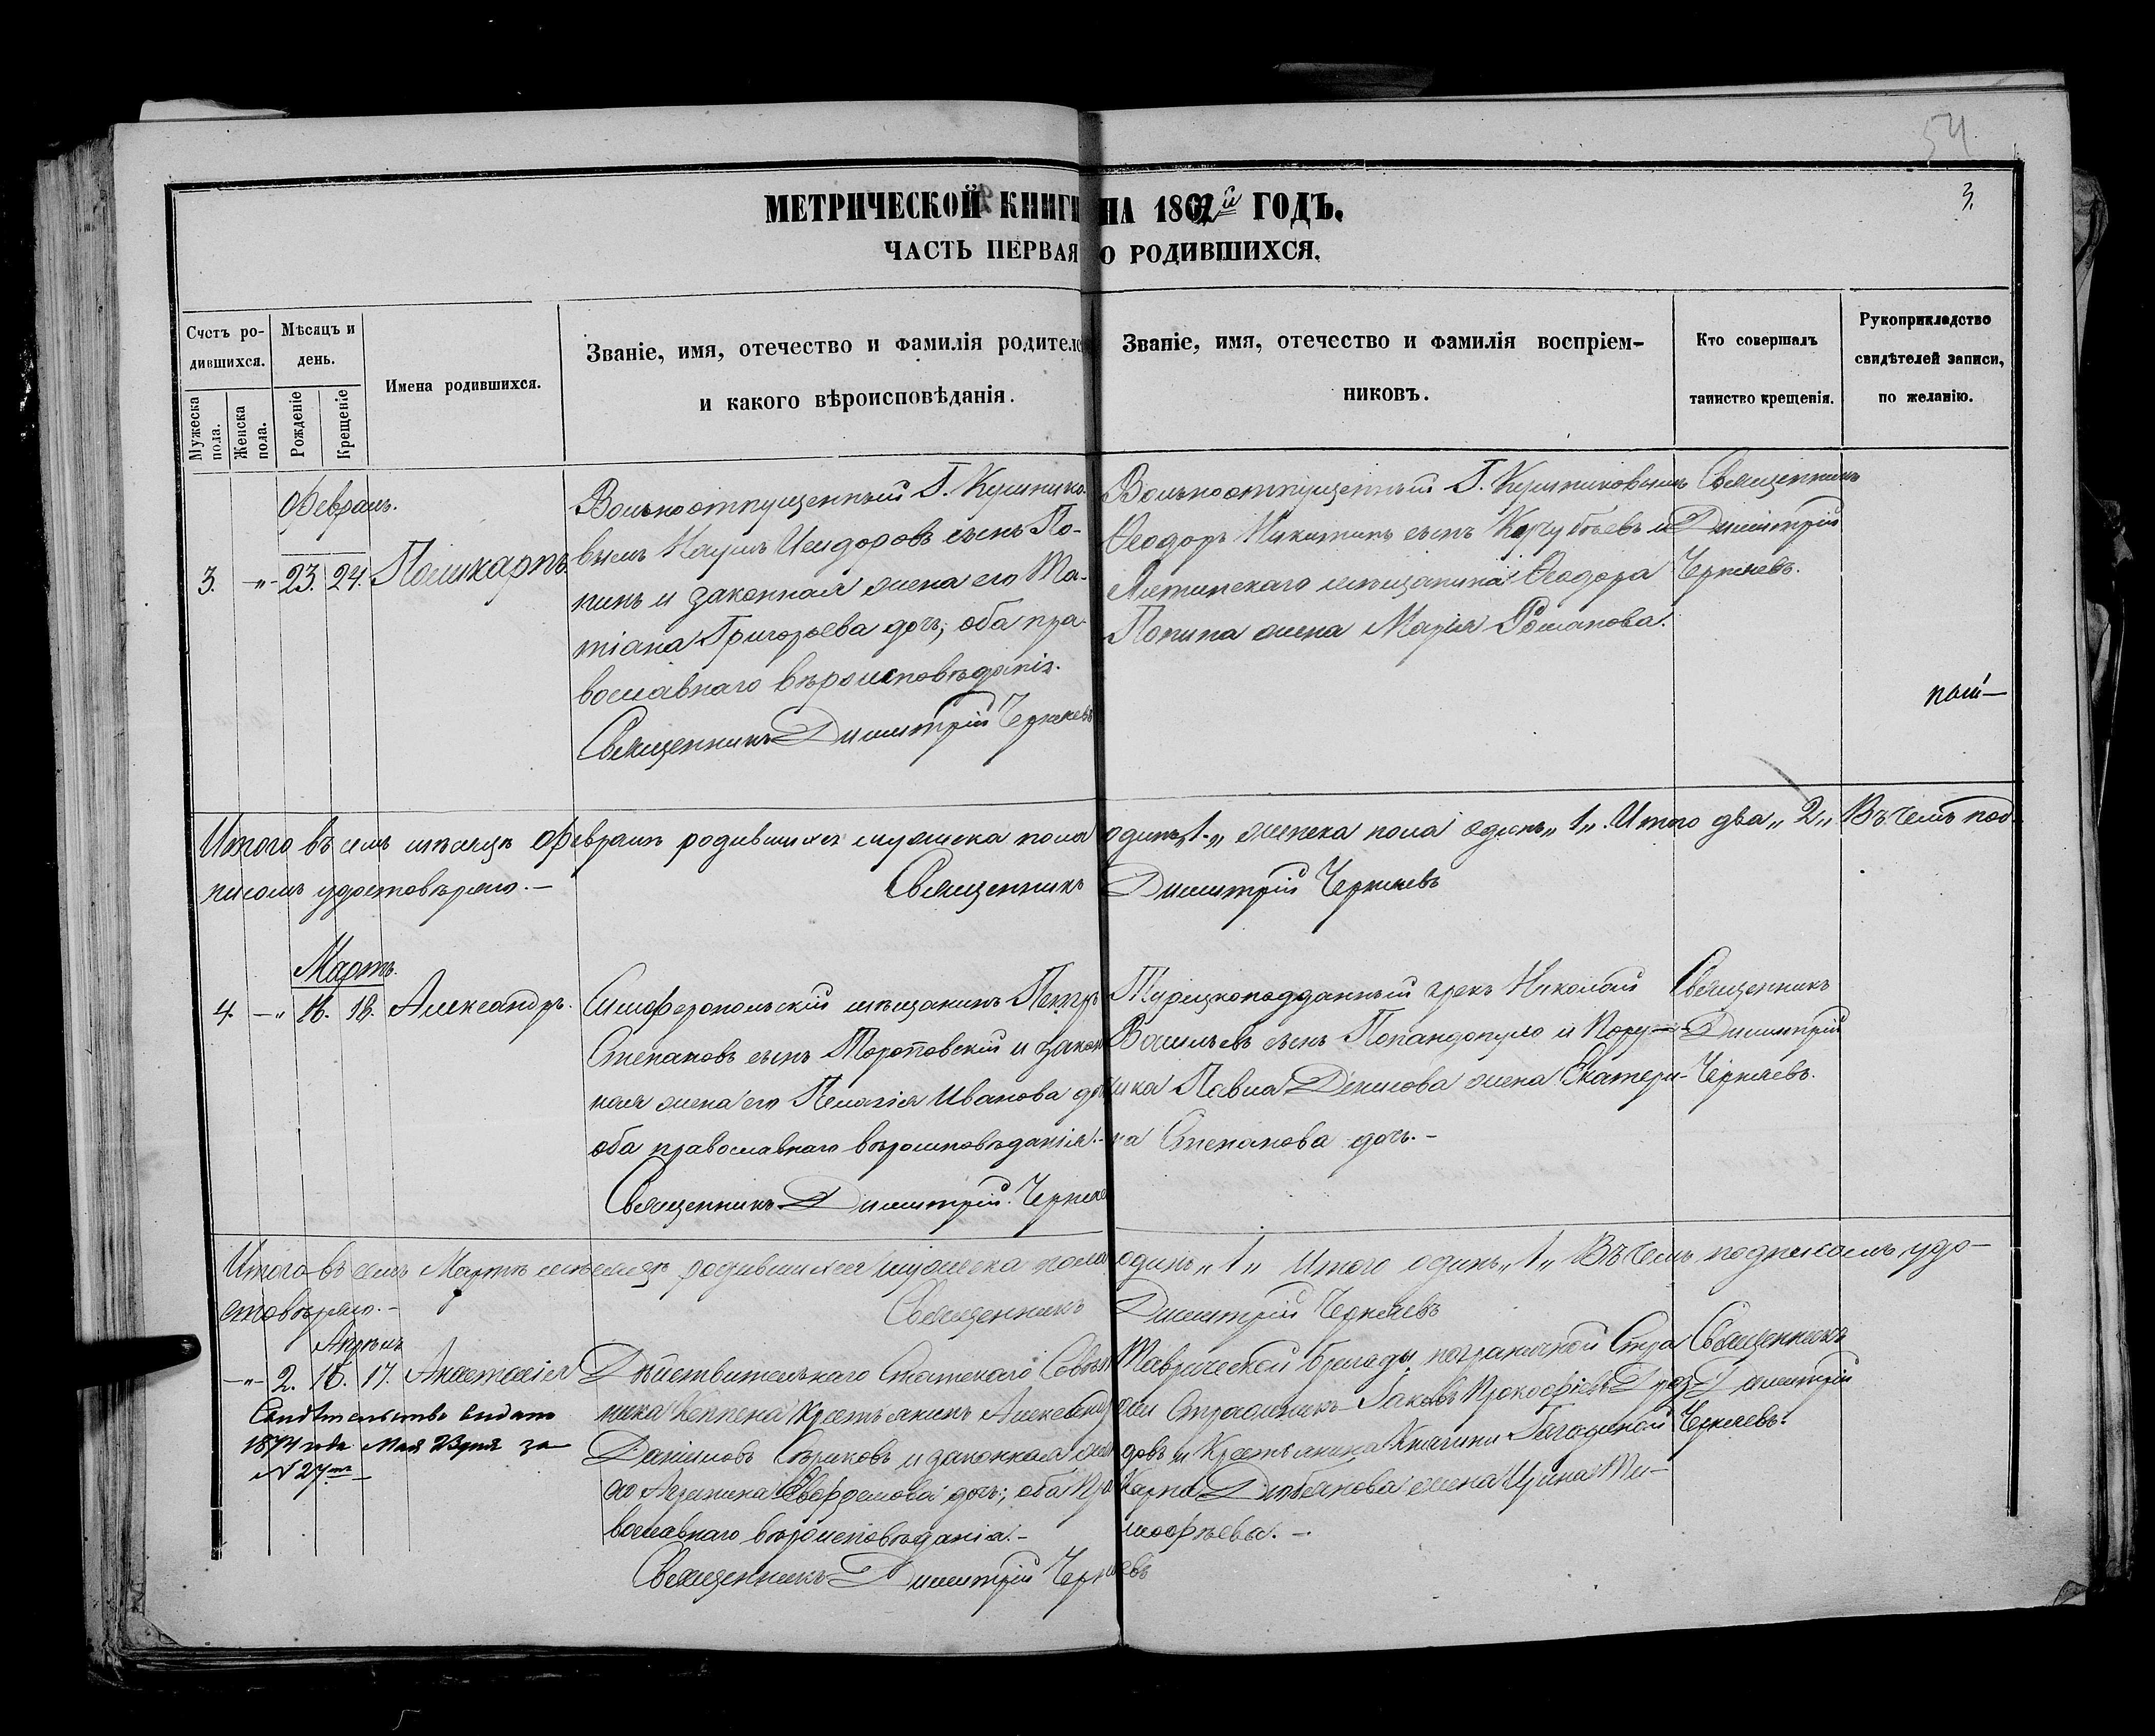 54
3.
МЕТРИЧЕСКОЙ КНИГИ НА 1862й ГОДЪ.
ЧАСТЬ ПЕРВАЯ О РОДИВШИХСЯ.
Счетъ ро-
дившихся.
Мужеска пола.
Женска пола.
Мѣсяцъ и
день.
Рожденіе
Крещеніе
Имена родившихся.
Званіе, имя, отечество и фамилія родителе
и какого вѣроисповѣданія.
Званіе, имя, отечество и фамилія воспріем-
никовъ.
Кто совершалъ
таинство крещенія.
Рукоприкладство
свидѣтелей записи,
по желанію.
Февраль.
3. -"- 23. 24. Поликарпъ.
Вольноотпущенный Г. Кушнико-
вымъ Наумъ Исидоровъ сынъ По-
нинъ и законная жена его Та-
тіана Григорьева дочь, оба пра-
вославнаго вѣроисповѣданія.
Священникъ Димитрій Черняевъ
Вольноотпущенный Г. Кушниковымъ
Ѳеодоръ Никитинъ сынъ и
Ялтинскаго мѣщанина Ѳеодора
Понина жена Марія Романова.
Священникъ
Димитрій
Черняевъ.
Итого въ семъ мѣсяцѣ Февралѣ родившихся мужеска пола одинъ „1„ женска пола одна „1„. Итого два „2„ Въ чемъ под
писомъ удостовѣряю.-
Священникъ Димитрій Черняевъ
Мартъ.
4. -" 16. 18. Александръ.
Симферопольскій мѣщанинъ Петръ
Степановъ сынъ и закон
ная жена его Пелагія Иванова до
оба православнаго вѣроисповѣданія.-
Священникъ Димитрій Черняев
Турецкоподданный грекъ Николай
Васильевъ сынъ Попандопуло и Пору-
чика Павла Денисова жена Екатери-
на Степанова дочь.-
Священникъ
Димитрій
Черняевъ.
Итого въ семъ Мартѣ мѣсяцѣ родившихся мужеска пола одинъ „1„ Итого одинъ „1„ Въ чемъ подписомъ удо-
стовѣряю.-
Священникъ Димитрій Черняевъ
Апрѣль
-"- 2. 16. 17. Анастасія
Свидѣтельство выдано
1874 года Мая 23 дня за
N 27мъ
Дѣйствительнаго Статскаго Совѣт
ника Кеппена крестьянинъ Александр
Даниловъ и законная жен
его Агрипина Евфремова дочь; оба пра
вославнаго вѣроисповѣданія.-
Священникъ Димитрій Черняевъ
Таврической бригады пограничной Стра
жи Стражникъ Іаковъ Прокофіевъ Дроз
довъ и крестьянина Княгини Гагариной
Карпа жена Ирина Ти-
мофѣева.-
Священникъ
Димитрій
Черняевъ.